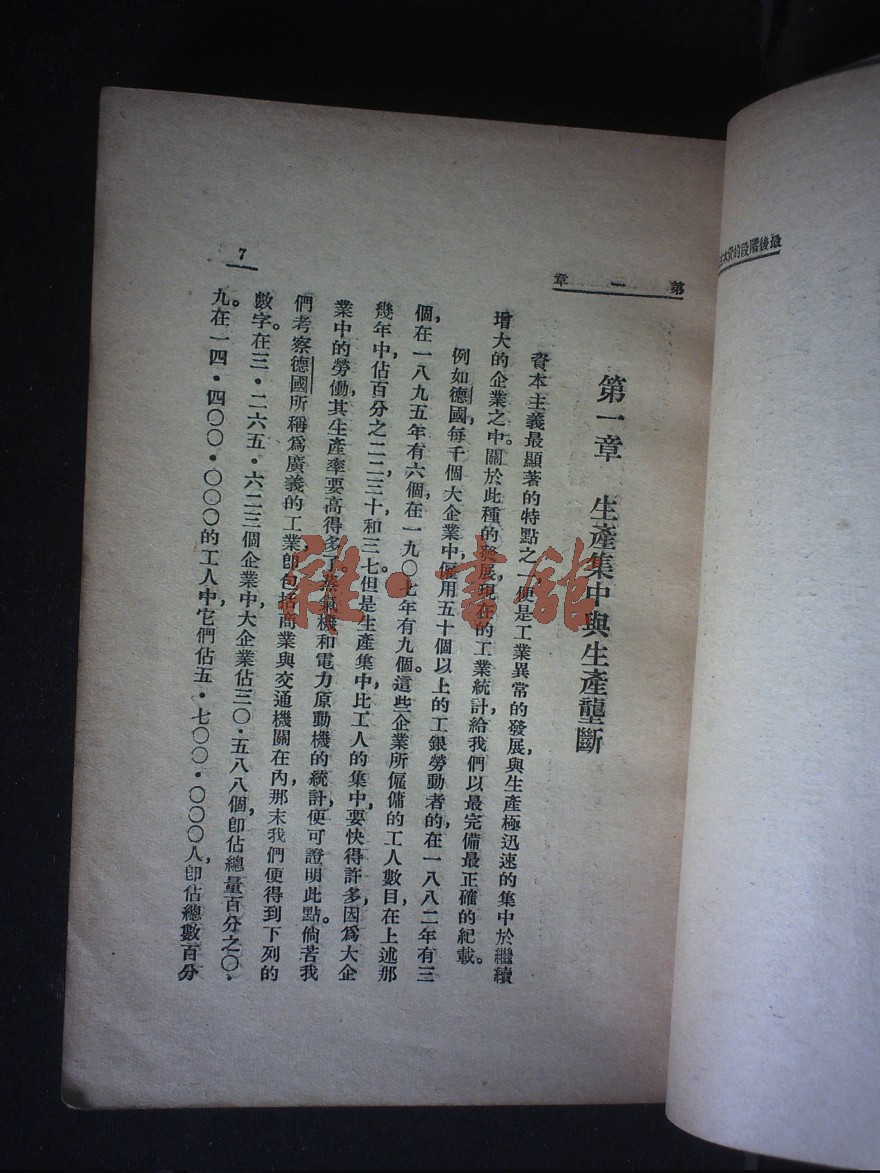 最後階段的資本
第一章
7
第一章 生產集中與生產壟斷
資本主義最顯著的特點之一,便是工業異常的發展與生產極迅速的集中於繼續
增大的企業之中。關於此種的發展,現在的工業統計給我們以最完備最正確的紀載。
例如德國,每千個大企業中僱用五十個以上的工銀勞動者的在一八八二年有三
個,在一八九五年有六個,在一九〇七年有九個。這些企業所僱傭的工人數目,在上述那
幾年中,佔百分之二二三十和三七。但是生產集中比工人的集中,要快得許多,因爲大企
業中的勞働,其生產率要高得多了。蒸氣機和電力原動機的統計,便可證明此點。倘若我
們考察德國所稱爲廣義的工業,卽包括商業與交通機關在內,那末我們便得到下列的
數字。在三·二六五·六二三個企業中,大企業佔三〇·五八八個,卽佔總量百分之〇·
九。在一四·四〇〇·〇〇〇的工人中,它們佔五·七〇〇·〇〇〇人,卽佔總數百分
雜·書館